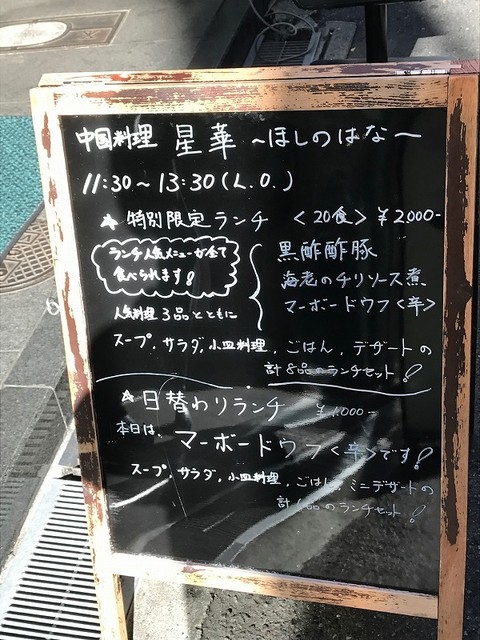 中国料理 星華 ～ほしのはな～
11:30～13:30(L.O.)
★ 特別限定ランチ <20食> ¥2,000-
ランチ人気メニューが全て
食べられます!
人気料理3品とともに
黒酢酢豚
海老のチリソース煮
マーボードウフ<辛>
スープ、サラダ、小皿料理、ごはん、デザートの
計8品のランチセット!
★日替わりランチ ¥1,000-
本日は、マーボードウフ<辛>です!
スープ、サラダ、小皿料理、ごはん、ミニデザートの
計 品のランチセット!